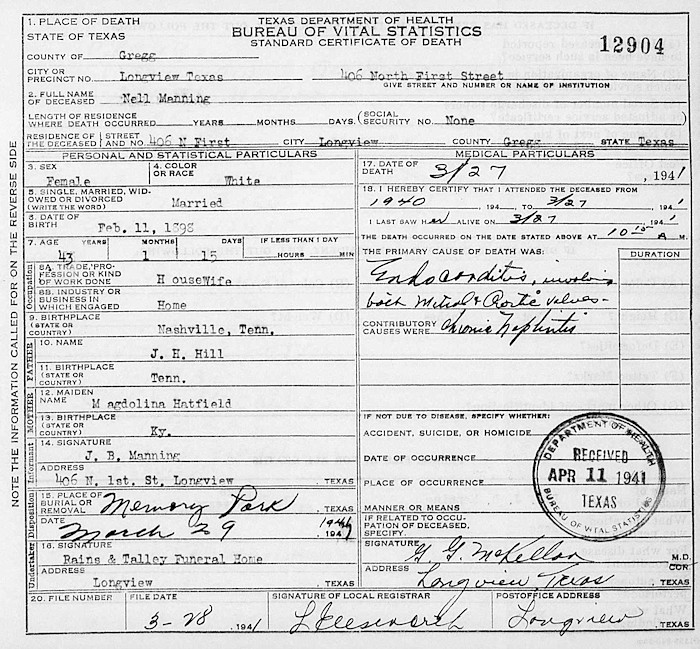 1. PLACE OF DEATH
STATE OF TEXAS
TEXAS DEPARTMENT OF HEALTH
BUREAU OF VITAL STATISTICS
STANDARD CERTIFICATE OF DEATH
12904
COUNTY OF Gregg
CITY OR PRECINCT NO. Longview Texas 406 North First Street
GIVE STREET AND NUMBER OR NAME OF INSTITUTION
2. FULL NAME OF DECEASED Nell Manning
LENGTH OF RESIDENCE WHERE DEATH OCCURRED YEARS MONTHS DAYS (SOCIAL SECURITY NO. None
RESIDENCE OF THE DECEASED STREET AND NO. 406 N First CITY Longview COUNTY Gregg STATE Texas
PERSONAL AND STATISTICAL PARTICULARS
3. SEX Female
4. COLOR OR RACE White
5. SINGLE, MARRIED, WIDOWED OR DIVORCED (WRITE THE WORD) Married
6. DATE OF BIRTH Feb. 11, 1898
7. AGE YEARS MONTHS DAYS IF LESS THAN 1 DAY
43 1 15 HOURS MIN
Occupation
8A. TRADE, PROFESSION OR KIND OF WORK DONE HouseWife
8B. INDUSTRY OR BUSINESS IN WHICH ENGAGED Home
9. BIRTHPLACE (STATE OR COUNTRY) Nashville, Tenn.
FATHER
10. NAME J. H. Hill
11. BIRTHPLACE (STATE OR COUNTRY) Tenn.
MOTHER
12. MAIDEN NAME Magdolina Hatfield
13. BIRTHPLACE (STATE OR COUNTRY) Ky.
Informant
14. SIGNATURE J. B. Manning
ADDRESS 406 N. 1st. St. Longview , TEXAS
Disposition
15. PLACE OF BURIAL OR REMOVAL Memory Park
DATE March 29 1941
Undertaker
16. SIGNATURE Rains & Talley Funeral Home
ADDRESS Longview , TEXAS
MEDICAL PARTICULARS
17. DATE OF DEATH 3/27 , 1941
18. I HEREBY CERTIFY THAT I ATTENDED THE DECEASED FROM
1940 194 TO 3/27 , 1941
I LAST SAW HER ALIVE ON 3/27 1941
THE DEATH OCCURRED ON THE DATE STATED ABOVE AT 10 15 A M.
THE PRIMARY CAUSE OF DEATH WAS: DURATION
Endocarditis, involving
both Mitral & Aortic valves-
CONTRIBUTORY CAUSES WERE: Chronic Nephritis
IF NOT DUE TO DISEASE, SPECIFY WHETHER:
ACCIDENT, SUICIDE, OR HOMICIDE
DATE OF OCCURRENCE
PLACE OF OCCURRENCE
MANNER OR MEANS
IF RELATED TO OCCUPATION OF DECEASED, SPECIFY.
SIGNATURE G. G. McKellar M.D. COR.
ADDRESS Longview, Texas , TEXAS
DEPARTMENT OF HEALTH
RECEIVED
APR 11 1941
TEXAS
BUREAU OF VITAL STATISTICS
20. FILE NUMBER
FILE DATE 3-28 , 1941
SIGNATURE OF LOCAL REGISTRAR
POSTOFFICE ADDRESS Longview , TEXAS
NOTE THE INFORMATION CALLED FOR ON THE REVERSE SIDE